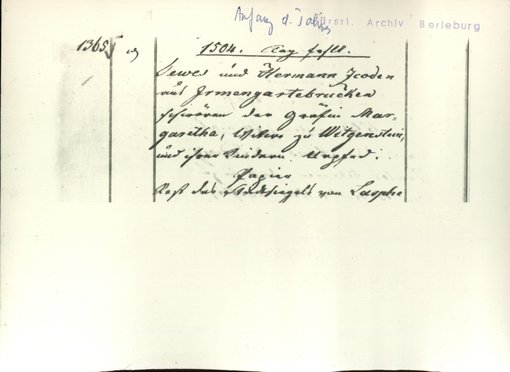 Anfang d. Jahres
Fürstl. Archiv Berleburg
1365
1504. Tag fehlt.
und Hermann Jcoden
aus Jrmengartebrücken
schwören der Gräfin Mar-
garetha, Witwe zu Witgenstein,
und ihren Kindern Urpfed.
Papier
Rest des Stadtsiegels von Laasphe